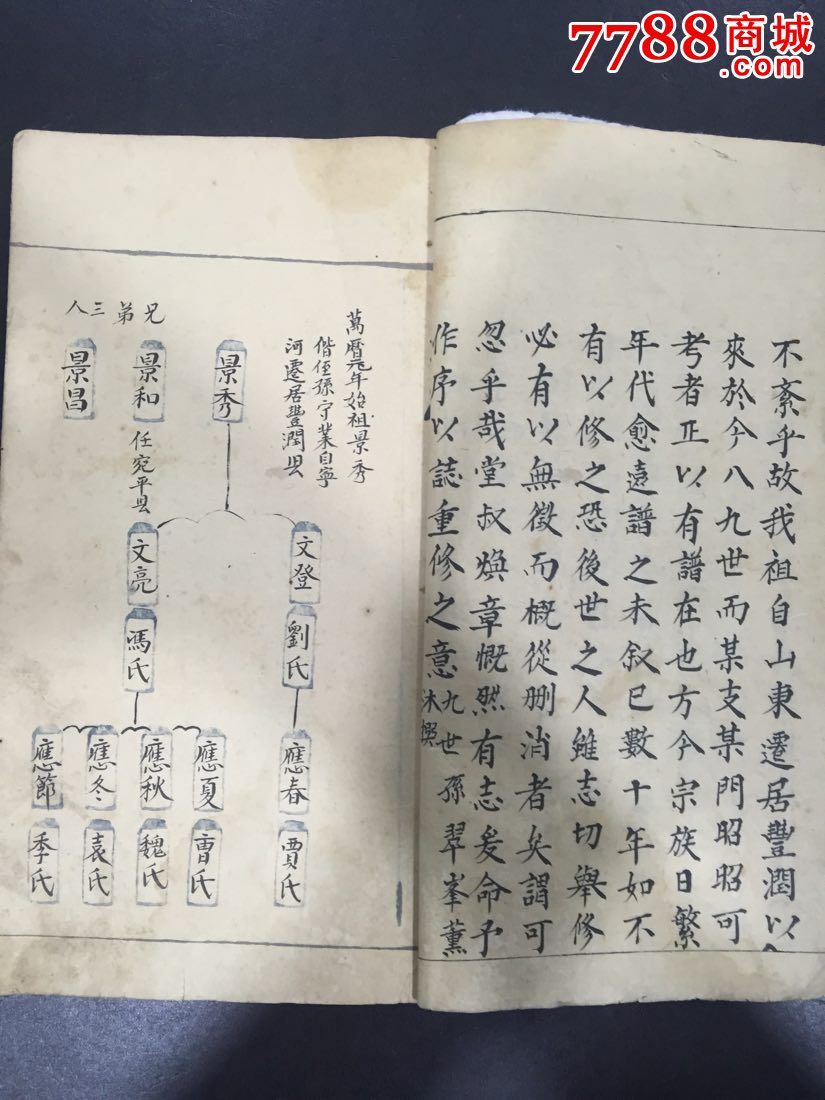 7788商城
.com
不紊乎故我祖自山東遷居豐潤以
來於今八九世而某支某門昭昭可
考者正以有譜在也方今宗族日繁
年代愈遠譜之未叙已數十年如不
有以修之恐後世之人雖志切舉修
必有以無徵而概從删消者矣謂可
忽乎哉堂叔煥章慨然有志爰命予
作序以誌重修之意九世孫翠峯薰
沐撰
萬曆元年始祖景秀
偕侄孫守業自寧
河遷居豐潤县
兄弟三人
景秀
景和
任宛平县
景昌
文登
劉氏
文亮
馮氏
應春
賈氏
應夏
曹氏
應秋
魏氏
應冬
袁氏
應節
季氏